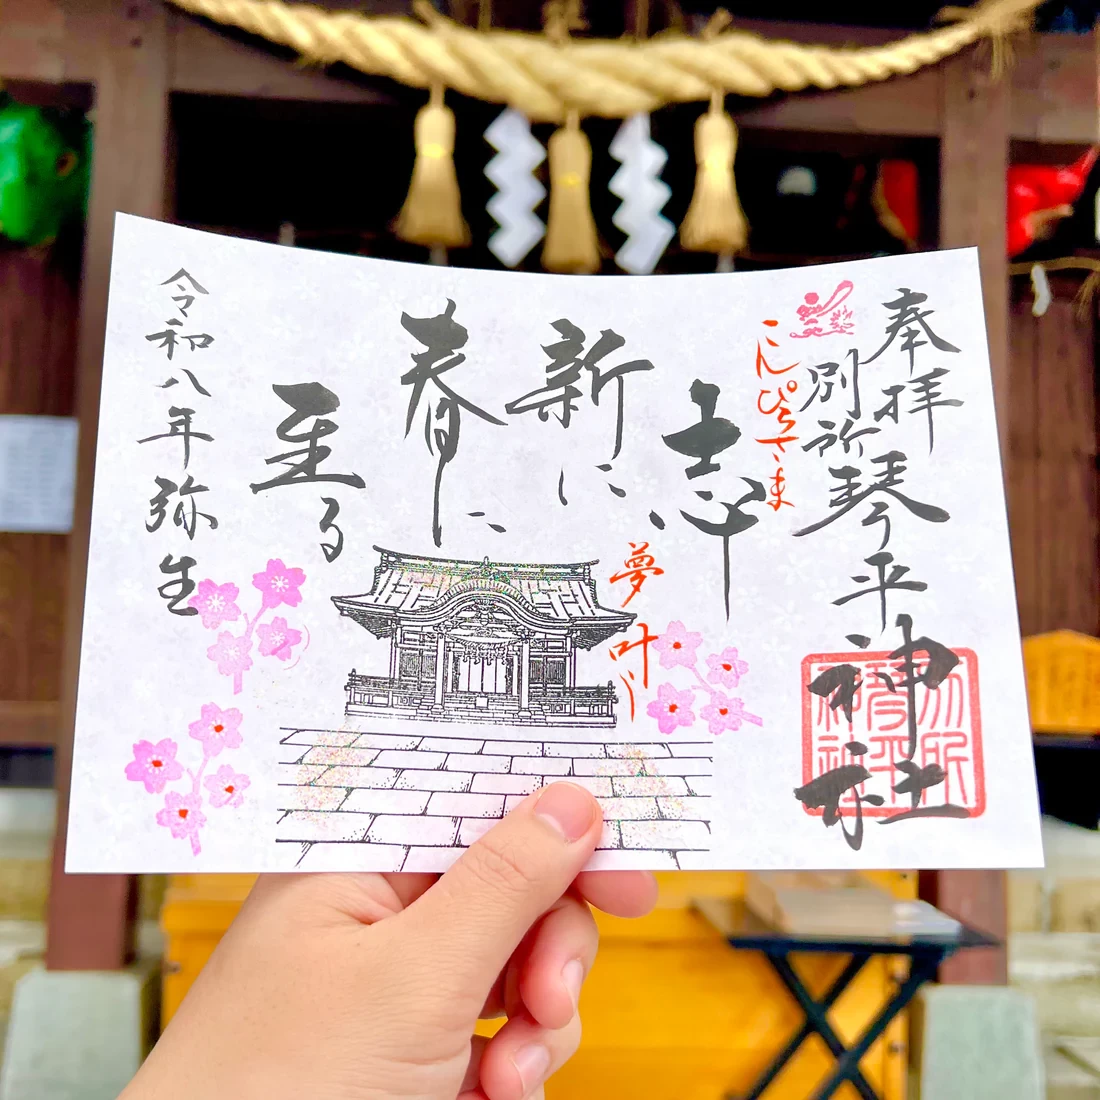 奉拝
別所琴平神社
こんぴらさま
志
新に
春に
至る
夢叶う
令和八年弥生
別所
琴平
神社